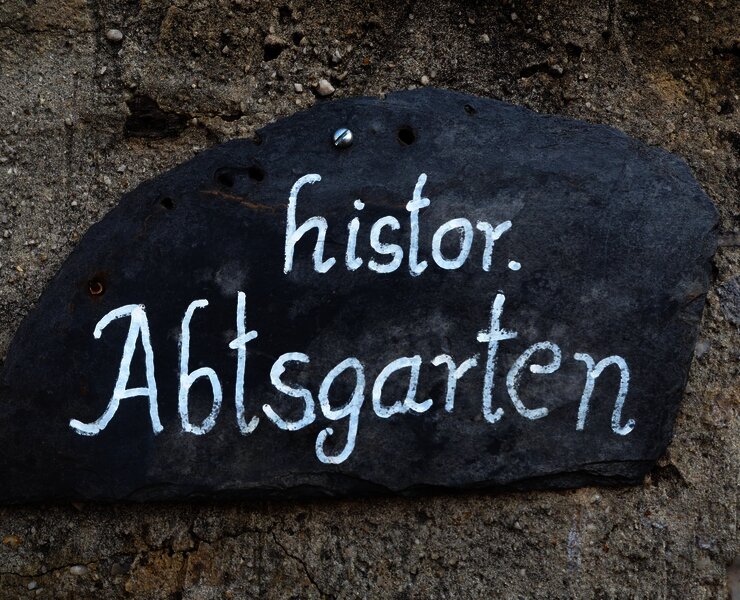 histor.
Abtsgarten